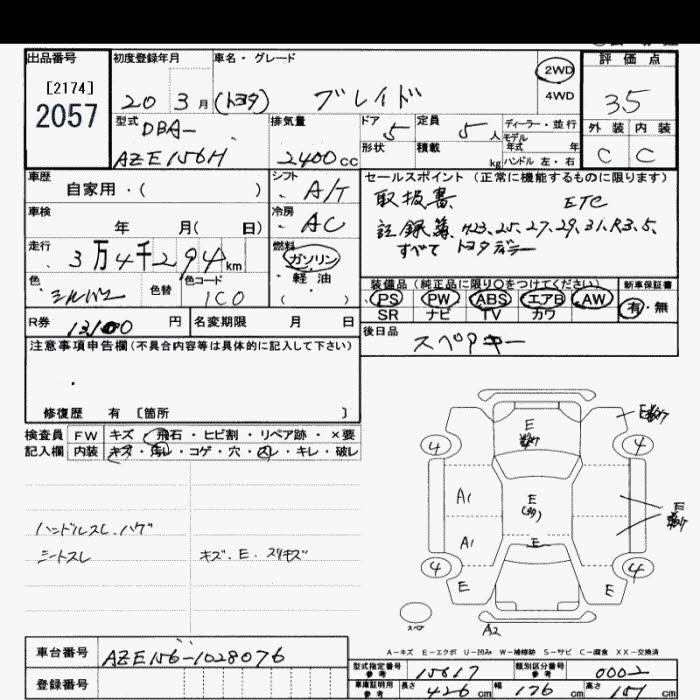 出品番号
[2174]
2057
初度登録年月
20 3月
車名・グレード
(トヨタ) ブレイド
2WD
4WD
評価点
3.5
外装 内装
C C
型式
DBA-
AZE156H
排気量
2400cc
ドア 5
定員 5人
ディーラー・並行
モデル
年式 年
形状
積載 kg
ハンドル 左・右
車歴
自家用・( )
シフト
A/T
セールスポイント (正常に機能するものに限ります)
取扱書 ETC
記録簿、H23、25、27、29、31、R3、5、
すべて トヨタディーラー
車検
年 月( 日)
冷房
AC
走行
3万4千294km
燃料
ガソリン
・軽油
( )
色
シルバー
色替
色コード
1C0
装備品 (純正品に限り○をつけてください)
PS PW ABS エアB AW
SR ナビ TV カワ
新車保証書
有・無
R券
円
名変期限 月 日
後日品
スペアキー
注意事項申告欄(不具合内容等は具体的に記入して下さい)
修復歴 有 [箇所 ]
検査員
記入欄
FW キズ・飛石・ヒビ割・リペア跡・×要
内装 キズ・汚レ・コゲ・穴・スレ・キレ・破レ
ハンドルスレ、ハゲ
シートスレ
キズ、E、スリキズ
E
E
4 4
A1
E
(多)
A1
E
E
4 4
E E
スペア
A2
A-キズ E-エクボ U-凹み W-補修跡 S-サビ C-腐食 XX-交換済
車台番号
AZE156-1028076
登録番号
型式指定番号
参考
15617
類別区分番号
参考
0002
車庫証明用
参考
長さ 426cm
幅 176cm
高さ 151cm